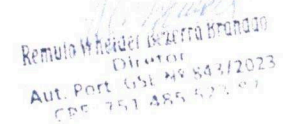 Remulo Wheider Bezerra Brandão
Diretor
Aut. Port. GSE Nº 843/2023
CPF: 751.485.523-87